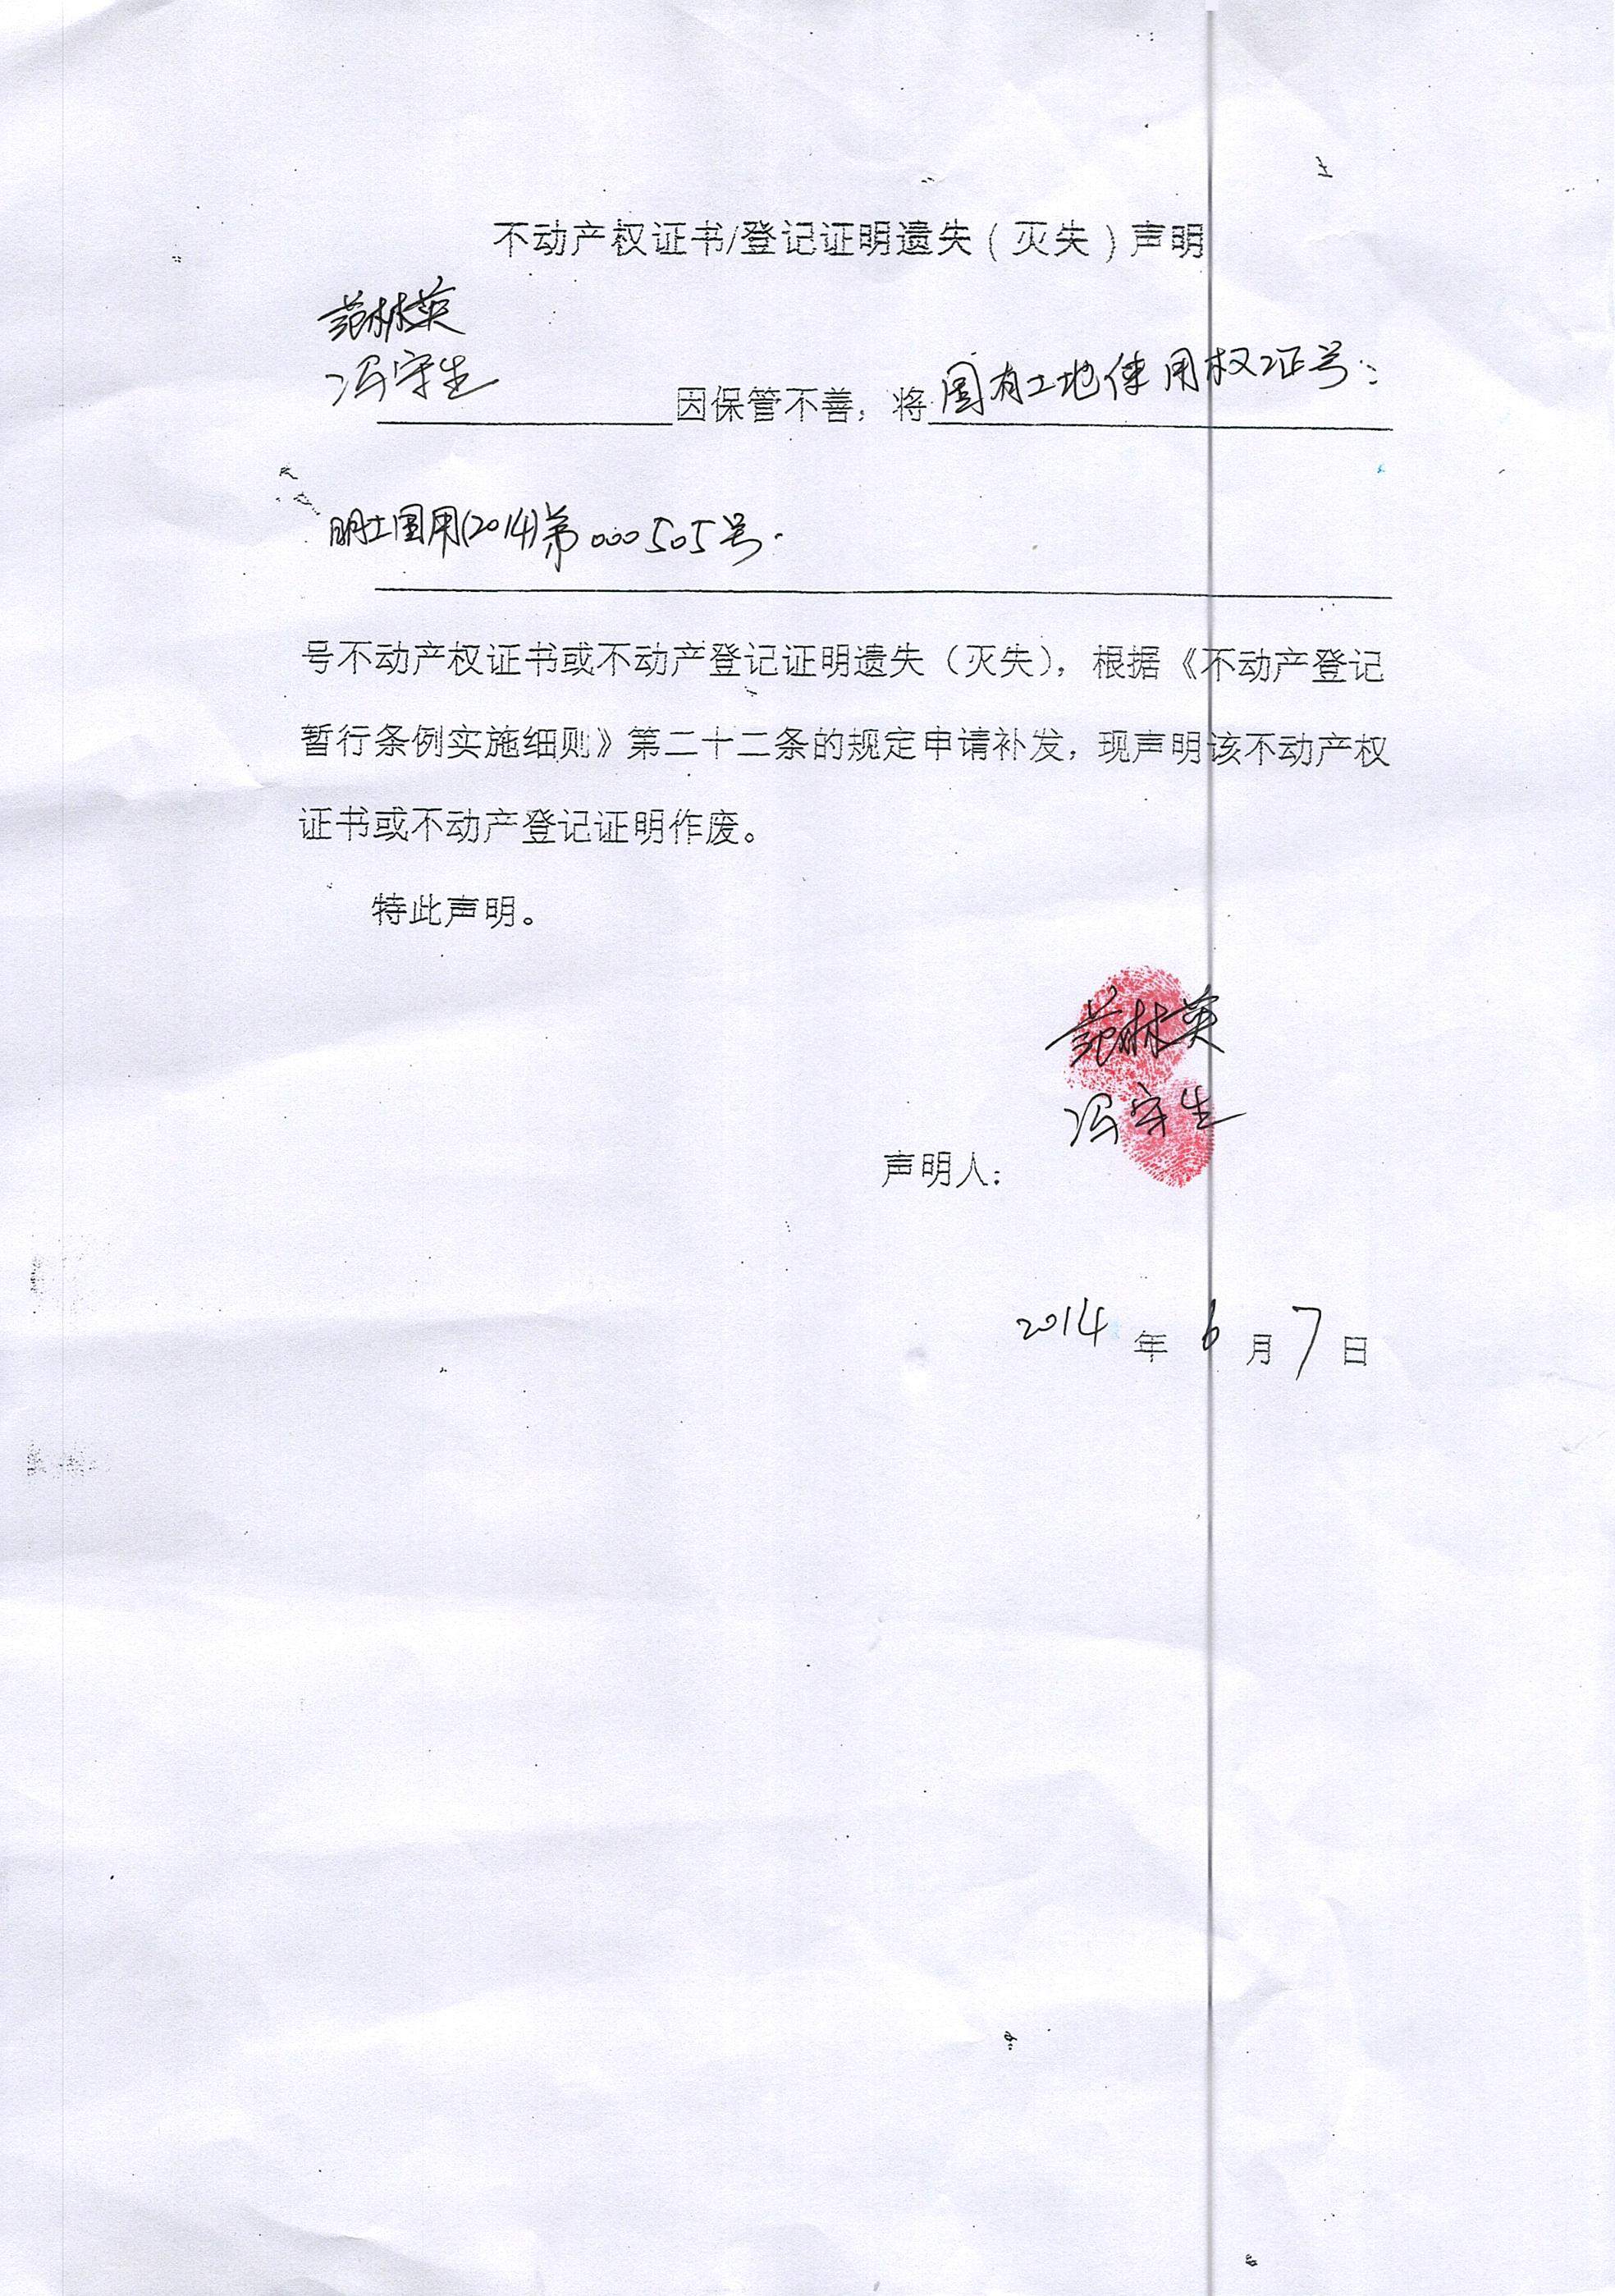 不动产权证书/登记证明遗失(灭失)声明
范林英
冯守生
因保管不善，将国有土地使用权证号：
明土国用(2014)第000505号.
号不动产权证书或不动产登记证明遗失（灭失），根据《不动产登记
暂行条例实施细则》第二十二条的规定申请补发，现声明该不动产权
证书或不动产登记证明作废。
特此声明。
范林英
冯守生
声明人：
2014年6月7日